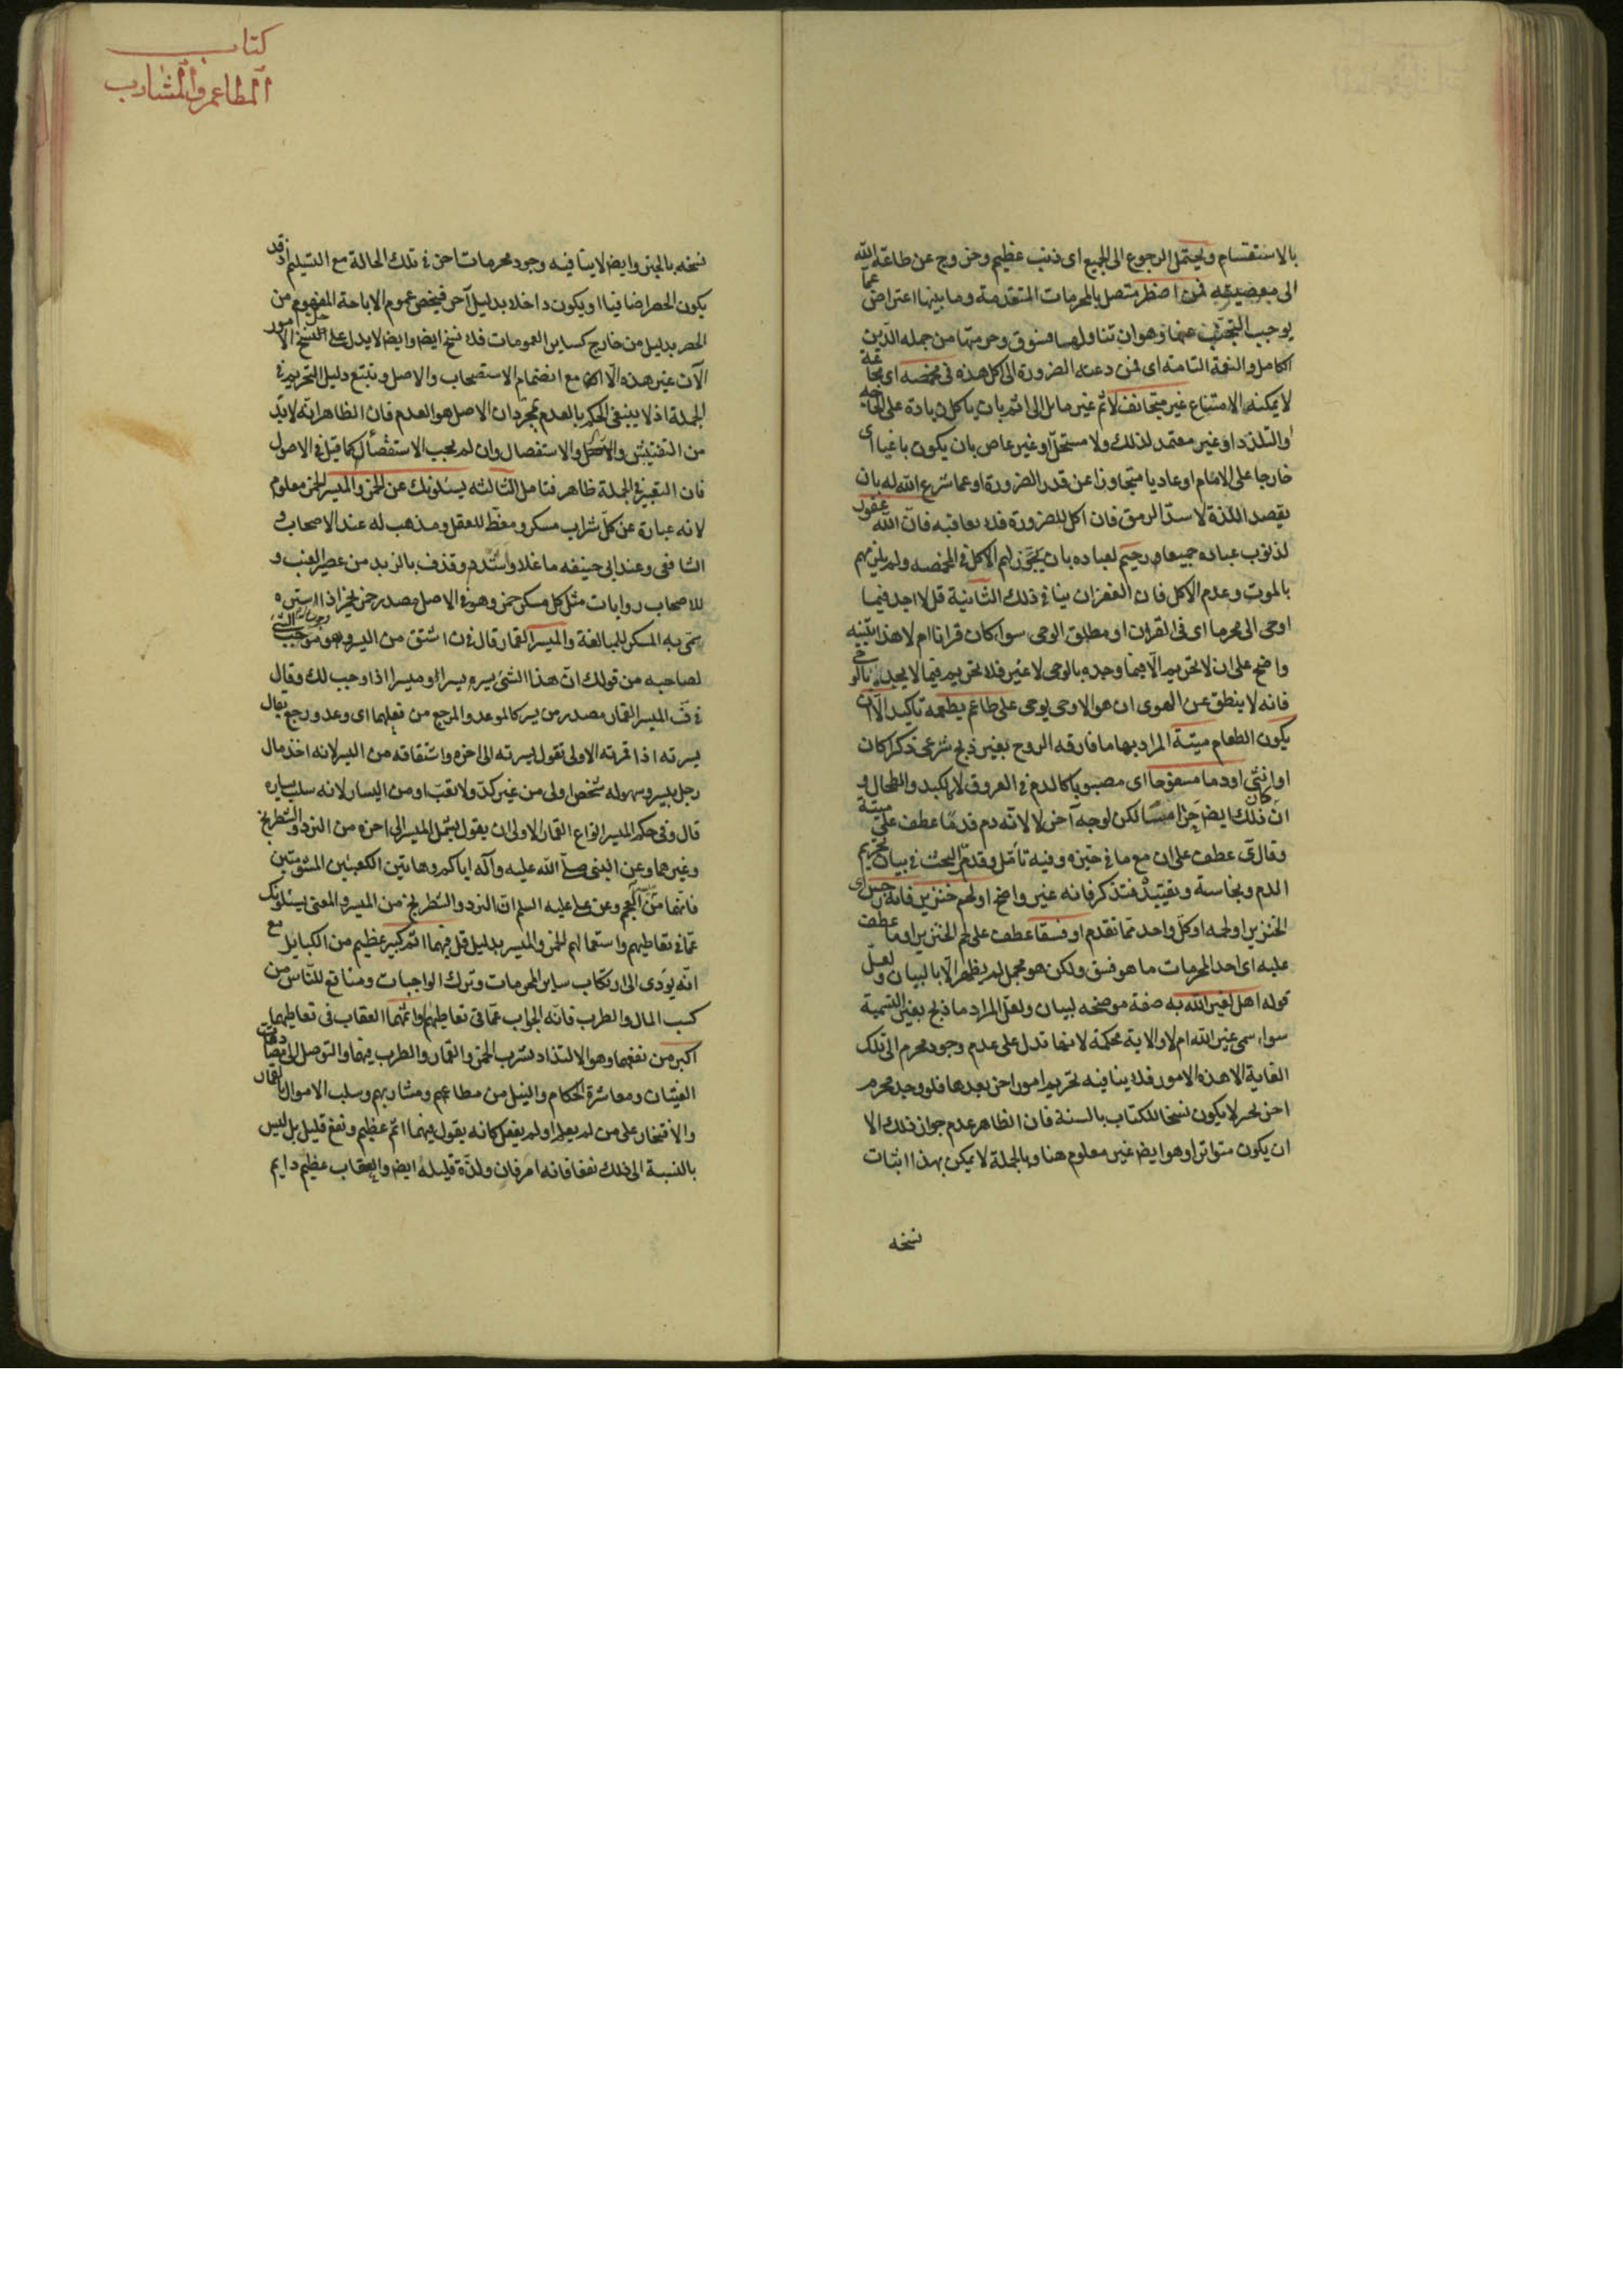 بالاستقسام ويحتمل الرجوع الى الجميع اى ذنب عظيم وخروج عن طاعة الله
الى معصيته فمن اضطر متصل بالمحرمات المتقدمة وما بينها اعتراض عما
يوجب التجنب عنها وهو ان تناولها فسوق وحرمتها من جملة الدين
الكامل والنعمة التامة اى فمن دعته الضرورة الى اكل هذه فى مخمصة اى مجاعة
لا يمكنه الامتناع غير متجانف لاثم غير مايل الى اثم بان ياكل زيادة على الحاجه
او التلذذ او غير معتمد لذلك ولا مستحل او غير عاص بان يكون باغيا اى
خارجا على الامام او عاديا متجاوزا عن قدر الضرورة او عما شرع الله له بان
يقصد اللذة لا سد الرمق فان اكل للضرورة فلا يعاقبه فان الله غفور
لذنوب عباده جميعا ورحيم لعباده بان يجوز لهم الاكل فى المخمصه ولم يلزمهم
بالموت وعدم الاكل فان الغفران ينافى ذلك الثانية قل لا اجد فيما
اوحى الى محرما اى فى القران او مطلق الوحى سواء كان قرانا ام لا هذا تنبيه
واضح على ان لا تحريم الا فيما وجده بالوحى لا غير فلا تحريم فيما لا يجده بالوحى
فانه لا ينطق عن الهوى ان هو الا وحى يوحى على طاعم يطعمه تاكيد الا ان
يكون الطعام ميتة المراد بها ما فارقه الروح بغير ذبح شرعى ذكرا كان
او انثى او دما مسفوحا اى مصبوبا كالدم فى العروق لا كالكبد والطحال و
ان كان ذلك ايضا حراما لكن لوجه آخر لا لانه دم قدما عطف على ميتة
وقال ى عطف على ان مع ما فى حيزه وفيه تأمل وقد مر البحث فى بيان تحريم
الدم ونجاسة وتقييده فتذكر فانه غير واضح او لحم خنزير فانه رجس اى
الخنزير او لحمه او كل واحد مما تقدم او فسقا عطف على لحم الخنزير او ما عطف
عليه اى احد المحرمات ما هو فسق ولكن هو مجمل لم يظهر الا بالبيان ولعل
قوله اهل لغير الله به صفة موضحه لبيان ولعل المراد ما ذبح بغير التسمية
سواء سمى غير الله ام لا والاية محكمة لانها تدل على عدم وجود محرم الى تلك
الغاية الا هذه الامور فلا ينافيه تحريم امور اخر بعدها فلو وجد محرم
اخر بخبر لا يكون نسخا للكتاب بالسنة فان الظاهر عدم جواز ذلك الا
ان يكون متواترا وهو ايضا غير معلوم هنا وبالجملة لا يمكن بهذا اثبات
نسخه
كتاب
المطاعم والمشارب
نسخه بالخبر وايضا لا ينافيه وجود محرمات اخر فى تلك الحالة مع التسليم اذ قد
يكون الحصر اضافيا او يكون داخلا بدليل آخر فيخص عموم الاباحة المفهوم من
الحصر بدليل من خارج كساير العمومات فلا نسخ ايضا وايضا لا يدل على حل الامور
الآن غير هذه الا مع انضمام الاستصحاب والاصل وتتبع دليل التحريم فى
الجملة اذ لا ينبغى الحكم بالعدم بمجرد ان الاصل هو العدم فان الظاهر انه لا بد
من التفتيش والاستفصال وان لم يجب الاستقصاء كما قيل فى الاصول
فان التقييد فى الجملة ظاهر فتامل الثالثه يسئلونك عن الخمر والميسر الخمر معلوم
لانه عبارة عن كل شراب مسكر ومغط للعقل ومذهب له عند الاصحاب و
الشافعى وعند ابى حنيفه ما غلا واشتد وقذف بالزبد من عصير العنب و
للاصحاب روايات مثل كل مسكر خمر وهو فى الاصل مصدر خمر يخمر اذا ستره
سمى به المسكر للمبالغة والميسر القمار قال فى ن اشتق من اليسر وهو وجوب الشئ
لصاحبه من قولك ان هذا الشئ يسر يسرا او ميسرا اذا وجب لك وقال
فى ف الميسر القمار مصدر من يسر كالموعد والمرجع من فعلهما اى وعد ورجع يقال
يسرته اذا قمرته الاولى تقول يسرته الى اخره واشتقاقه من اليسر لانه اخذ مال
رجل بيسر وسهوله شخص اولى من غير كد ولا تعب او من اليسار لانه سلب يساره
قال وفى حكم الميسر انواع القمار الاولى ان يقول يشمل الميسر الى اخره من النرد والشطرنج
وغيرهما وعن النبى صلى الله عليه وآله اياكم وهاتين الكعبتين المشومتين
فانهما من ميسر العجم وعن على عليه السلم ان النرد والشطرنج من الميسر والمعنى يسئلونك
عما فى تعاطيهم واستعمالهم للخمر والميسر بدليل قل فيهما اثم كبير عظيم من الكباير مع
انه يؤدى الى ارتكاب ساير المحرمات وترك الواجبات ومنافع للناس من
كسب المال والطرب فانه الجواب عما فى تعاطيهم واثمهما العقاب فى تعاطيهما
اكبر من نفعهما وهو الالتذاذ بشرب الخمر والقمار والطرب فيهما والتوصل الى مصادقات
الفتيان ومعاشرة الحكام والنيل من مطاعمهم ومشاربهم وسلب الاموال بالقمار
والافتخار على من لم يعلم او لم يفعل كانه يقول فيهما اثم عظيم ونفع قليل بل ليس
بالنسبة الى ذلك نفعا فانه امر فان ولذة قليله ايضا والعقاب عظيم دايم